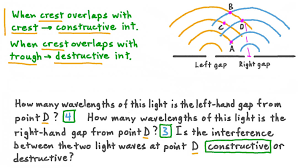 When crest overlaps with
crest → constructive int.
When crest overlaps with
trough → destructive int.
B
C
D
A
Left gap
Right gap
How many wavelengths of this light is the left-hand gap from
point D? 4 How many wavelengths of this light is the
right-hand gap from point D? 3 Is the interference
between the two light waves at point D constructive or
destructive?